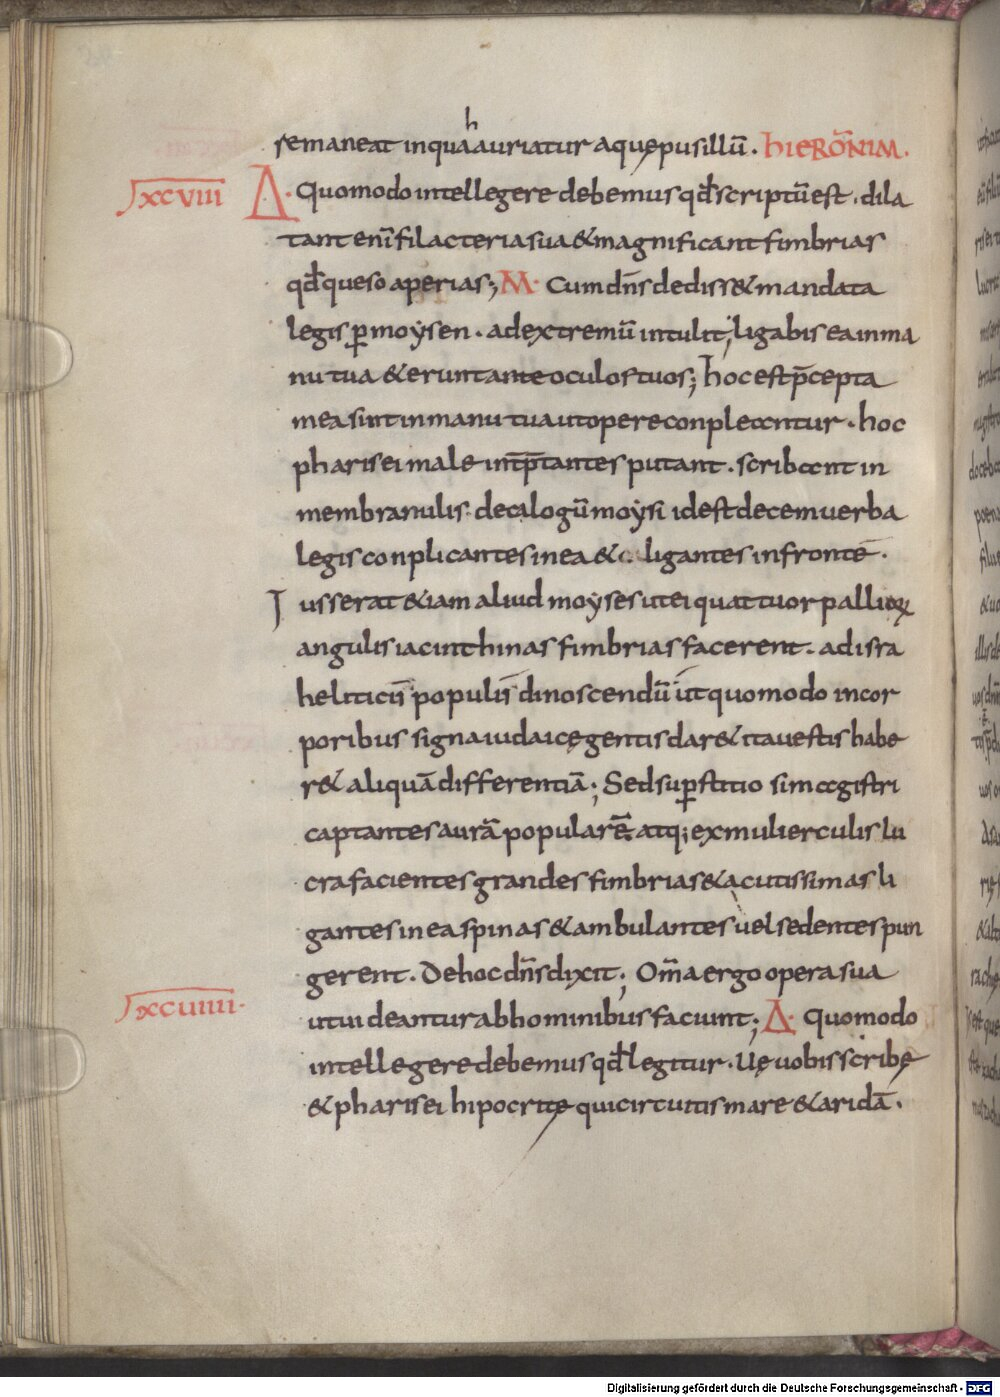 remaneat in qua hauriatur aquę pusillū. hIERŌNIM.
LXCVIII Δ. Quomodo intellegere debemus qđ scriptū est. dila
tant enī filacteria sua & magnificant fimbrias
qđ queso aperias; M. Cum dn̄s dediss& mandata
legis p̄ moẏsen. ad extremū intulit; ligabis ea in ma
nu tua & erunt ante oculos tuos; hoc est p̄cepta
mea sint in manu tua ut opere conpleantur. hoc
pharisei male int̄p̄tantes putant. scribant in
membranulis decalogū moẏsi id est decem uerba
legis conplicantes in ea & ligantes in fronte.
Iusserat &iam aliud moẏses ut ei quattuor palliorꝝ
angulis iacinthinas fimbrias facerent. ad isra
heliticis populis dinoscendū ut quomodo in cor
poribus signa iudaicę gentis dar& ita uestis habe
r& aliquā differentiā; Sed sup̄stitio si magistri
captantes aurā popularē atq; ex mulierculis lu
cra facientes grandes fimbrias & acutissimas li
gantes in ea spinas & ambulantes uel sedentes pun
gerent. De hoc dn̄s dixit; Om̄a ergo opera sua
LXCVIIII. ut uideantur ab hominibus faciunt; Δ. Quomodo
intellegere debemus qđ legitur. Uę uobis scribę
& pharisei hipocritę qui circuitis mare & aridā.
Digitalisierung gefördert durch die Deutsche Forschungsgemeinschaft - DFG